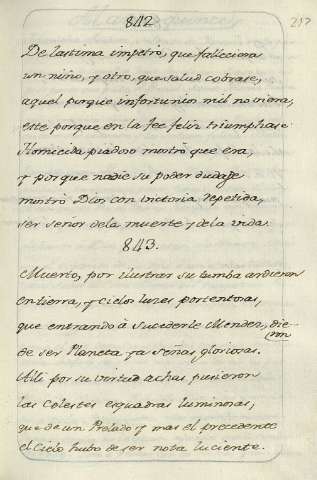 842
217
De lastima impetrò, que falleciera
un niño, y otro, que salud cobrase,
aquel porque infortunios mil no viera,
este porque en la fee feliz triumphase
Homicida piadoso mostrò que era,
y porque nadie su poder dudase
mostrò Dios con victoria repetida,
ser señor de la muerte y de la vida.
843.
Muerto, por ilustrar su tumba ardieron
en tierra, y Cielo luzes portentosas,
que entrando à sucederle Mendez, die-
ron
de ser Planeta ya señas gloriosas.
Alli por su virtud achas pusieron
las Celestes esquadras luminosas,
que de un Prelado y mas el precedente
el Cielo hubo de ser nota luciente.